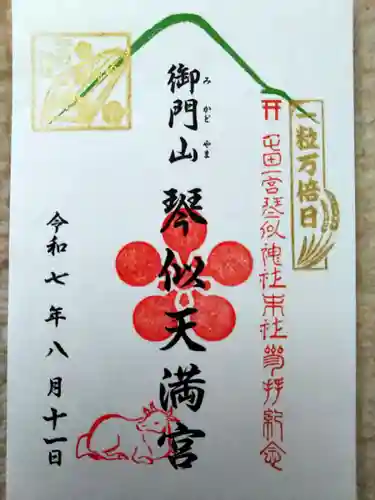 一粒万倍日
屯田一宮琴似神社末社參拝紀念
御門山
みかどやま
琴似天満宮
令和七年八月十一日